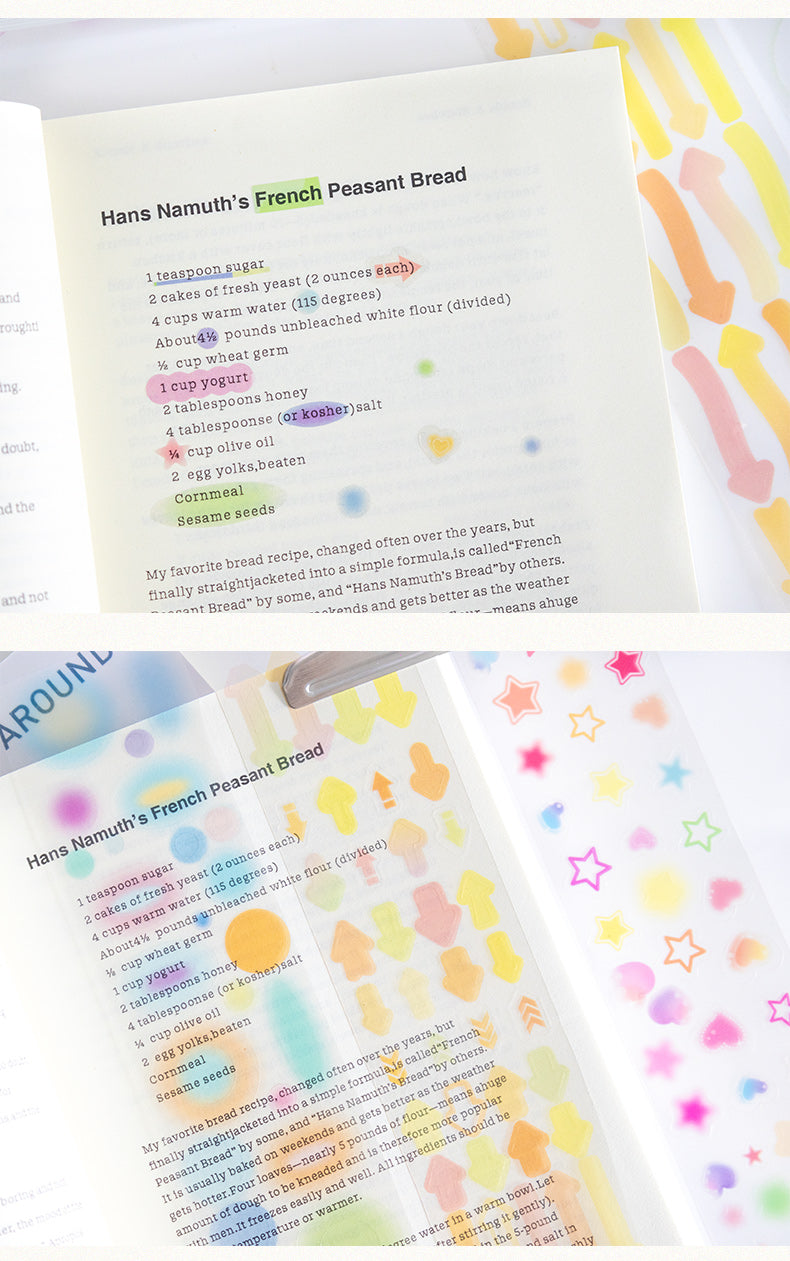 and
rought!
ing.
doubt,
nd the
and not
Hans Namuth's French Peasant Bread
1 teaspoon sugar
2 cakes of fresh yeast (2 ounces each)
4 cups warm water (115 degrees)
About4½ pounds unbleached white flour (divided)
½ cup wheat germ
1 cup yogurt
2 tablespoons honey
4 tablespoonse (or kosher)salt
¼ cup olive oil
2 egg yolks,beaten
Cornmeal
Sesame seeds
My favorite bread recipe, changed often over the years, but
finally straightjacketed into a simple formula,is called“French
Peasant Bread” by some, and “Hans Namuth's Bread”by others.
ekends and gets better as the weather
flour—means ahuge
AROUND
Hans Namuth's French Peasant Bread
1 teaspoon sugar
2 cakes of fresh yeast (2 ounces each)
4 cups warm water (115 degrees)
About4½ pounds unbleached white flour (divided)
½ cup wheat germ
1 cup yogurt
2 tablespoons honey
4 tablespoonse (or kosher)salt
¼ cup olive oil
2 egg yolks,beaten
Cornmeal
Sesame seeds
My favorite bread recipe, changed often over the years, but
finally straightjacketed into a simple formula,is called“French
Peasant Bread” by some, and “Hans Namuth's Bread”by others.
It is usually baked on weekends and gets better as the weather
gets hotter.Four loaves—nearly 5 pounds of flour—means ahuge
amount of dough to be kneaded and is therefore more popular
with men.it freezes easily and well. All ingredients should be
temperature or warmer.
gree water in a warm bowl.Let
after stirring it gently).
in the 5-pound
nd salt in